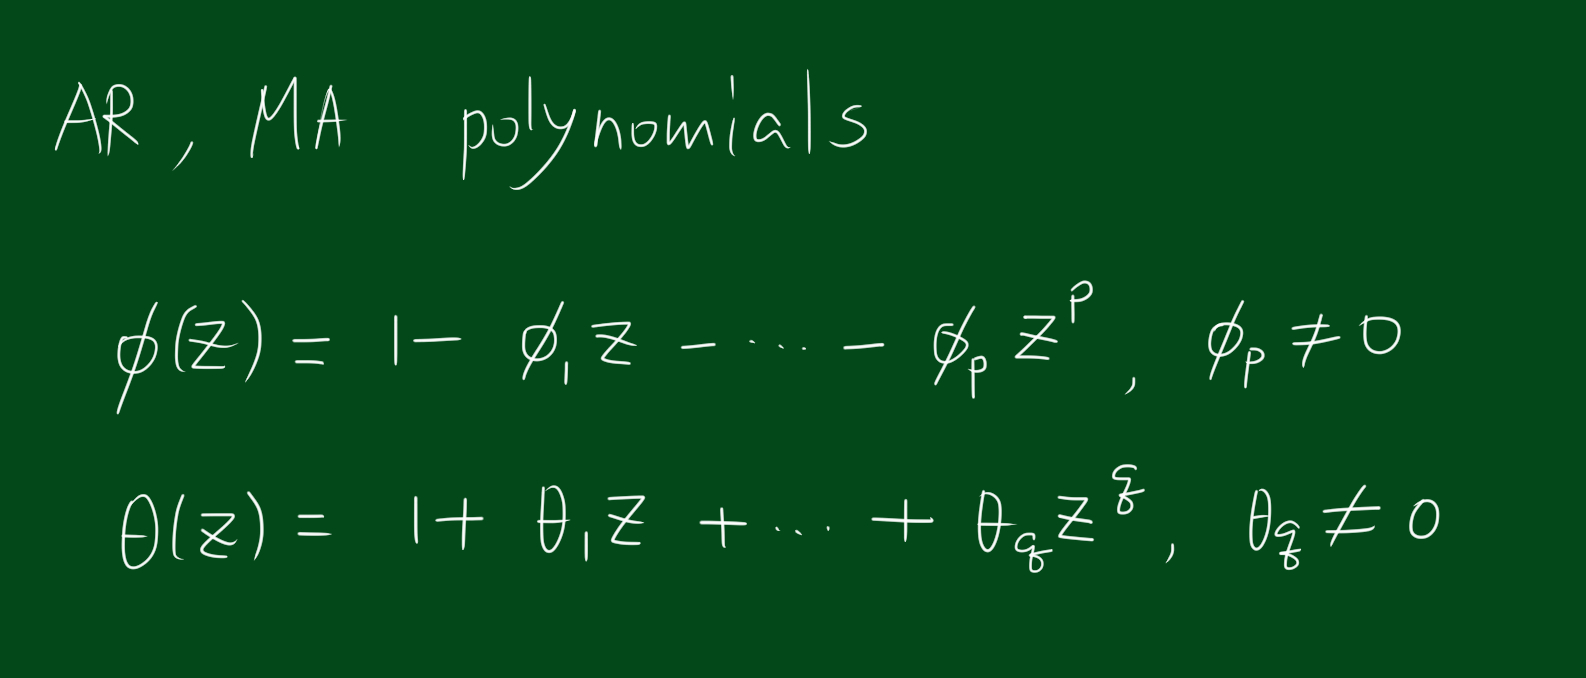 AR, MA polynomials
ϕ(z) = 1 - ϕ₁z - ⋯ - ϕₚzᵖ, ϕₚ ≠ 0
θ(z) = 1 + θ₁z + ⋯ + θ_q z^q, θ_q ≠ 0